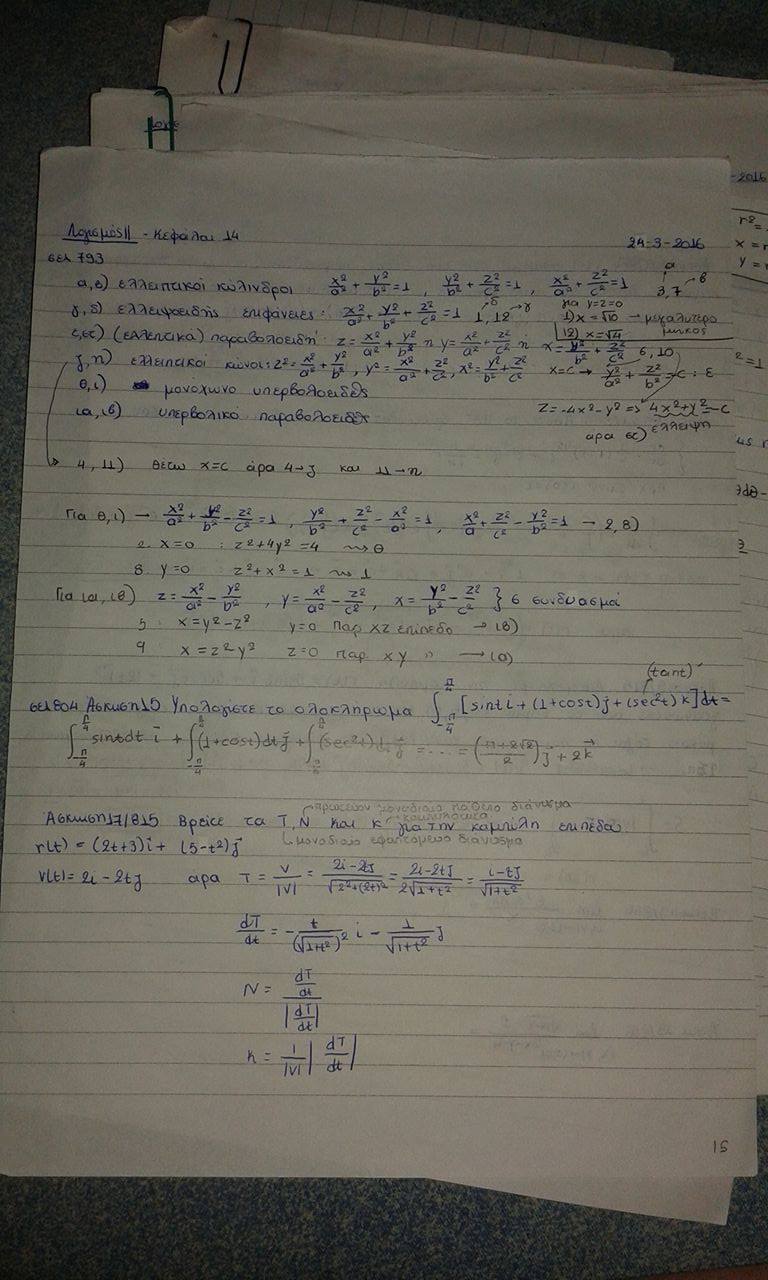 Λογισμός II - Κεφάλαι 14
24-3-2016
σελ 793
α,ε) ελλειπτικοί κύλινδροι : x²/a² + y²/b² = 1 , y²/b² + z²/c² = 1 , x²/a² + z²/c² = 1
α
3,7
β
γ,δ) ελλειψοειδής επιφάνειες : x²/a² + y²/b² + z²/c² = 1
δ γ
1, 12
για y=z=0
1) x = √10 → μεγαλύτερο μήκος
12) x = √4
ε,στ) (ελλειπτικά) παραβολοειδή : z = x²/a² + y²/b² ή y = x²/a² + z²/c² ή x = y²/b² + z²/c²
6, 10
ζ,η) ελλειπτικοί κώνοι : z² = x²/a² + y²/b² , y² = x²/a² + z²/c² , x² = y²/b² + z²/c²
x=c → y²/a² + z²/b² = c : ε
θ,ι) μονόχωνο υπερβολοειδές
z = -4x²-y² => 4x²+y² = -c
έλλειψη
ια,ιβ) υπερβολικό παραβολοειδές
άρα στ)
4, 11) θέτω x=c άρα 4→ζ και 11→η
Για θ,ι) → x²/a² + y²/b² - z²/c² = 1 , y²/b² + z²/c² - x²/a² = 1 , x²/a + z²/c² - y²/b² = 1 → 2, 8)
2. x=0 : z²+4y² = 4 ⇝ θ
8. y=0 : z²+x² = 1 ⇝ ι
Για ια, ιβ) z = x²/a² - y²/b² , y = x²/a² - z²/c² , x = y²/b² - z²/c² } 6 συνδυασμοί
5. x = y²-z² y=0 παρ xz επίπεδο → ιβ)
9 x = z²-y² z=0 παρ xy " → ια)
(tant)'
σελ 804 Άσκηση 15 Υπολογίστε το ολοκλήρωμα ∫_{-π/4}^{π/4} [sint i + (1+cost) j + (sec²t) k] dt =
∫_{-π/4}^{π/4} sint dt i + ∫_{-π/4}^{π/4} (1+cost) dt j + ∫ (sec²t) dt j = ... = (π+2√2 / 2) j + 2k
πρωτεύον μοναδιαίο κάθετο διάνυσμα
Άσκηση 17/815 Βρείτε τα T, N και κ για την καμπύλη επιπέδο
καμπυλότητα
μοναδιαίο εφαπτόμενο διάνυσμα
r(t) = (2t+3)i + (5-t²)j
v(t) = 2i - 2tj άρα T = v/|v| = 2i-2tj / √(2²+(2t)²) = 2i-2tj / 2√(1+t²) = i-tj / √(1+t²)
dT/dt = - t/(√(1+t²))² i - 1/√(1+t²) j
N = (dT/dt) / |dT/dt|
κ = 1/|v| |dT/dt|
15